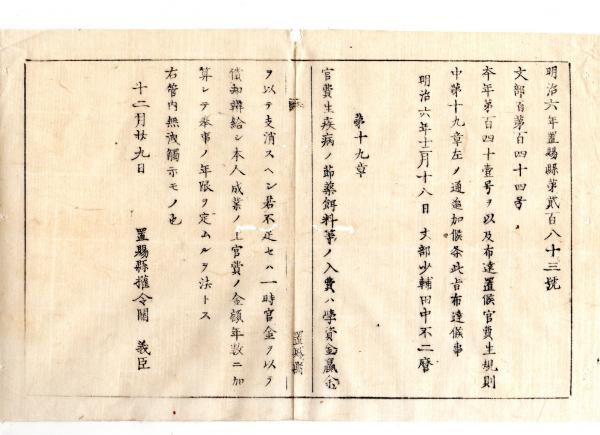 明治六年置賜縣第貳百八十三號
文部省第百四十四号
本年第百四十壹号ヲ以及布達置候官費生規則
中第十九章左ノ通追加候条此旨布達候事
明治六年十二月十八日 文部少輔田中不二麿
第十九章
官費生疾病ノ節藥餌料等ノ入費ハ學資金贏余
ヲ以テ支消スヘシ若不足セハ一時官金ヲ以テ
償却辨給シ本人成業ノ上官費ノ金額年数ニ加
算シテ奉事ノ年限ヲ定ムルヲ法トス
右管内無洩觸示モノ也
十二月廿九日 置賜縣權令關 義臣
置賜縣